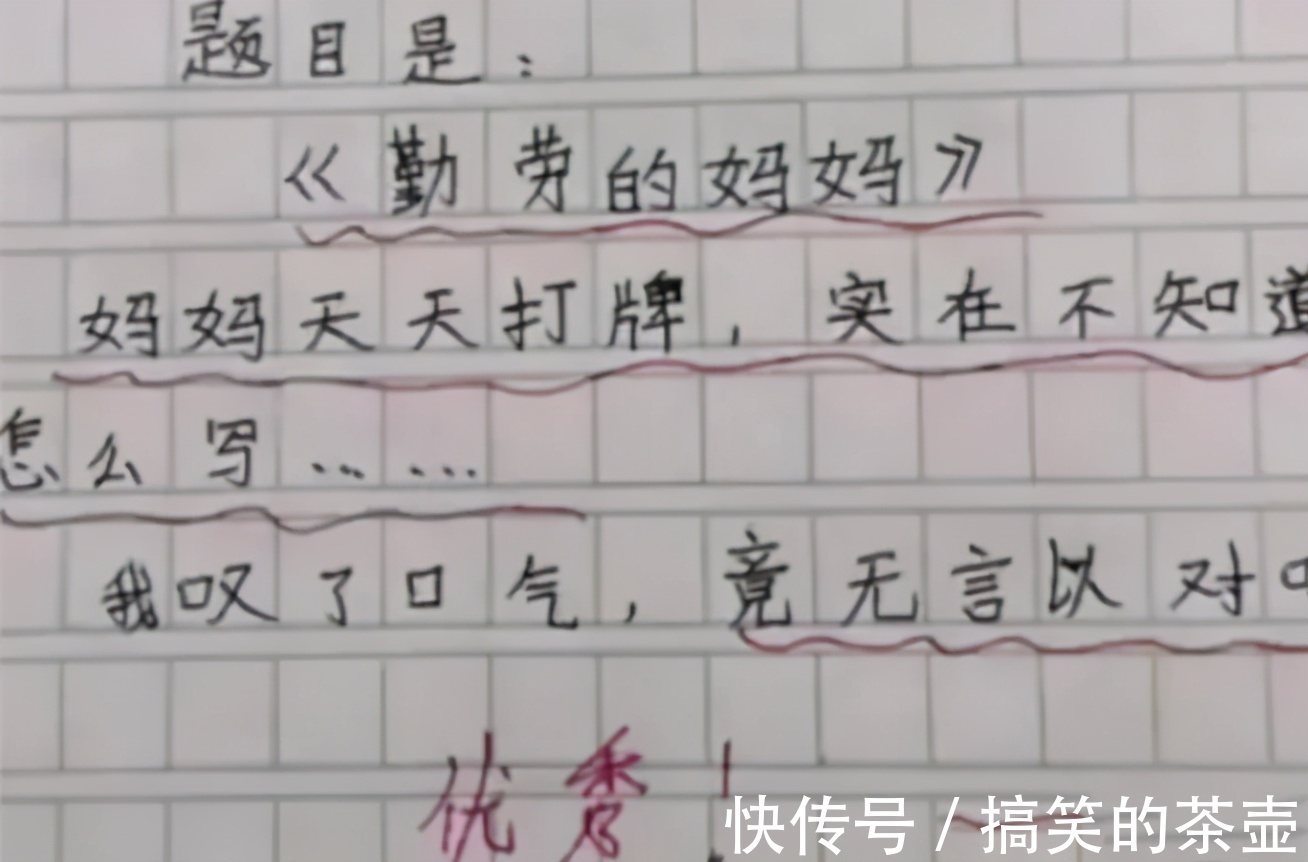 题目是：
《勤劳的妈妈》
妈妈天天打牌，实在不知道
怎么写……
我叹了口气，竟无言以对
优秀！
快传号／搞笑的茶壶